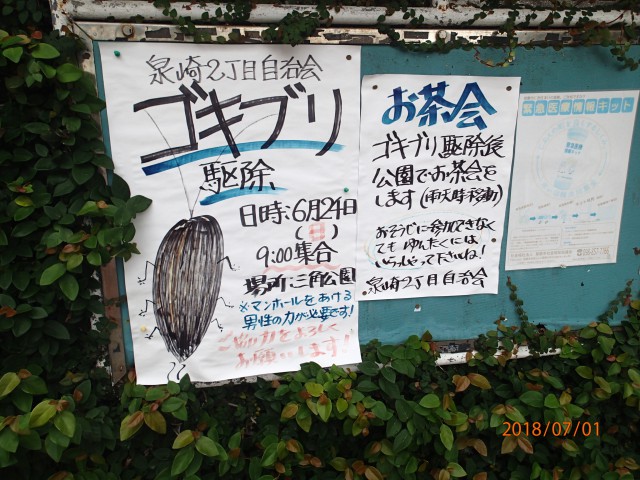 泉崎2丁目自治会
ゴキブリ
駆除
日時:6月24日
(日)
9:00集合
場所:三角公園
※マンホールをあける
男性の力が必要です!
ご協力をよろしく
お願いします!
お茶会
ゴキブリ駆除後
公園でお茶会を
します(雨天時移動)
おそうじに参加できなく
ても ゆんたくには
いらっやって下さいね!
泉崎2丁目自治会
緊急医療情報キット
2018/07/01